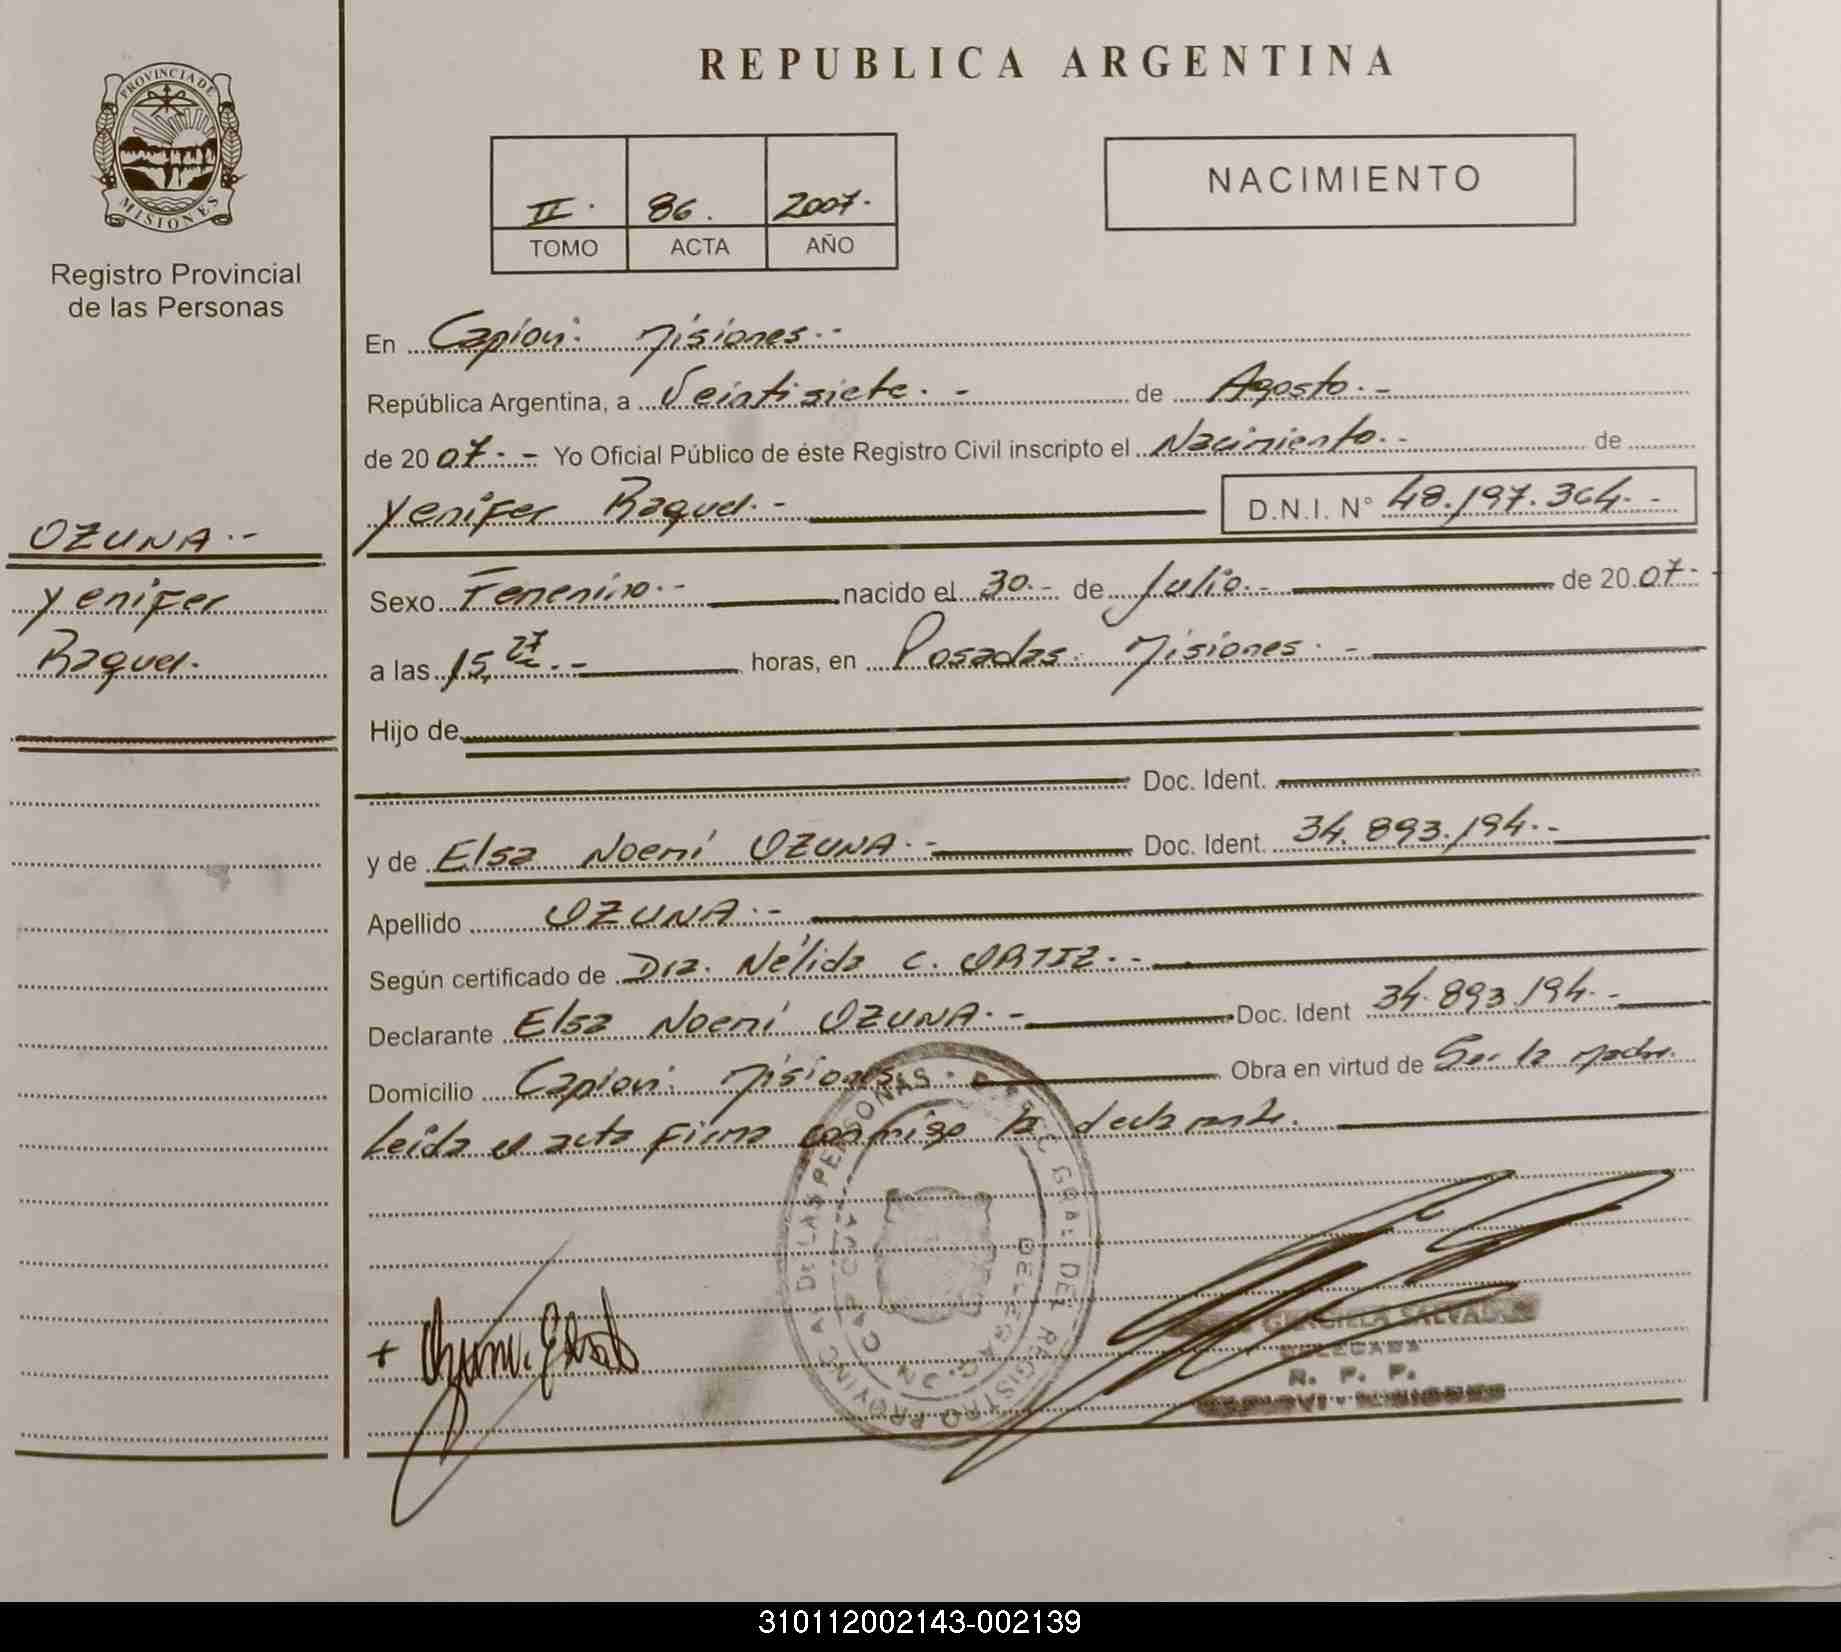 PROVINCIA DE
MISIONES
Registro Provincial
de las Personas
OZUNA.-
Yenifer
Raquel.
REPUBLICA ARGENTINA
II. 86. 2007.
TOMO ACTA AÑO
NACIMIENTO
En Capiovi. Misiones.-
República Argentina, a Veintisiete.- de Agosto.-
de 2007.- Yo Oficial Público de éste Registro Civil inscripto el Nacimiento.- de
Yenifer Raquel.- D.N.I. N° 48.197.364.-
Sexo Femenino.- nacido el 30.- de Julio.- de 2007.-
a las 15,27.- horas, en Posadas. Misiones.-
Hijo de
Doc. Ident.
y de Elsa Noemí OZUNA.- Doc. Ident. 34.893.194.-
Apellido OZUNA.-
Según certificado de Dra. Nélida C. ORTIZ.-
Declarante Elsa Noemí OZUNA.- Doc. Ident 34.893.194.-
Domicilio Capiovi. Misiones. Obra en virtud de Ser la madre.
Leida el acta firma conmigo la declarante.
GRACIELA SALVADOR
DELEGADA
R. P. P.
CAPIOVI - MISIONES
310112002143-002139